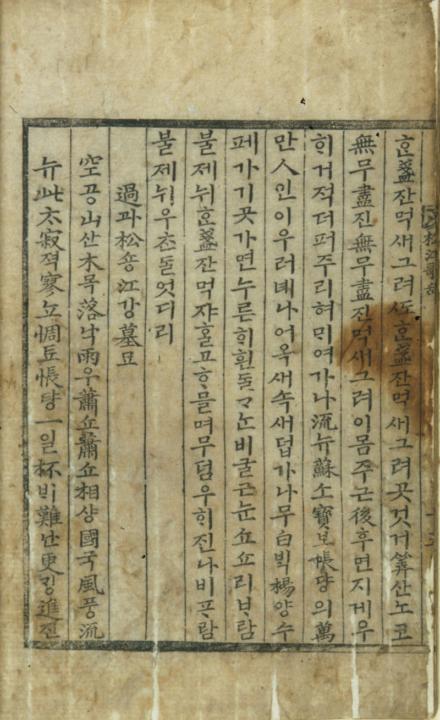 ᄒᆞᆫ盞잔먹새그려ᄯᅩᄒᆞᆫ盞잔먹새그려곳것거算산노코
無무盡진無무盡진먹새그려이몸주근後후면지게우
ᄒᆡ거적더퍼주리혀ᄆᆡ여가나流뉴蘇소寶보帳댱의萬
만人인이우러네나어옥새속새덥가나무白ᄇᆡᆨ楊양수
페가기곳가면누른ᄒᆡ흰ᄃᆞᆯᄀᆞᄂᆞᆫ비굴근눈쇼쇼리ᄇᆞ람
불제뉘ᄒᆞᆫ盞잔먹쟈ᄒᆞᆯ고ᄒᆞ믈며무덤우ᄒᆡ진나비ᄑᆞ람
불제뉘우ᄎᆞᆫᄃᆞᆯ엇디리
過과松숑江강墓묘
空공山산木목落낙雨우蕭쇼蕭쇼相샹國국風풍流
뉴此ᄎᆞ寂젹寥뇨惆듀悵댱一일杯ᄇᆡ難난更ᄀᆡᆼ進진